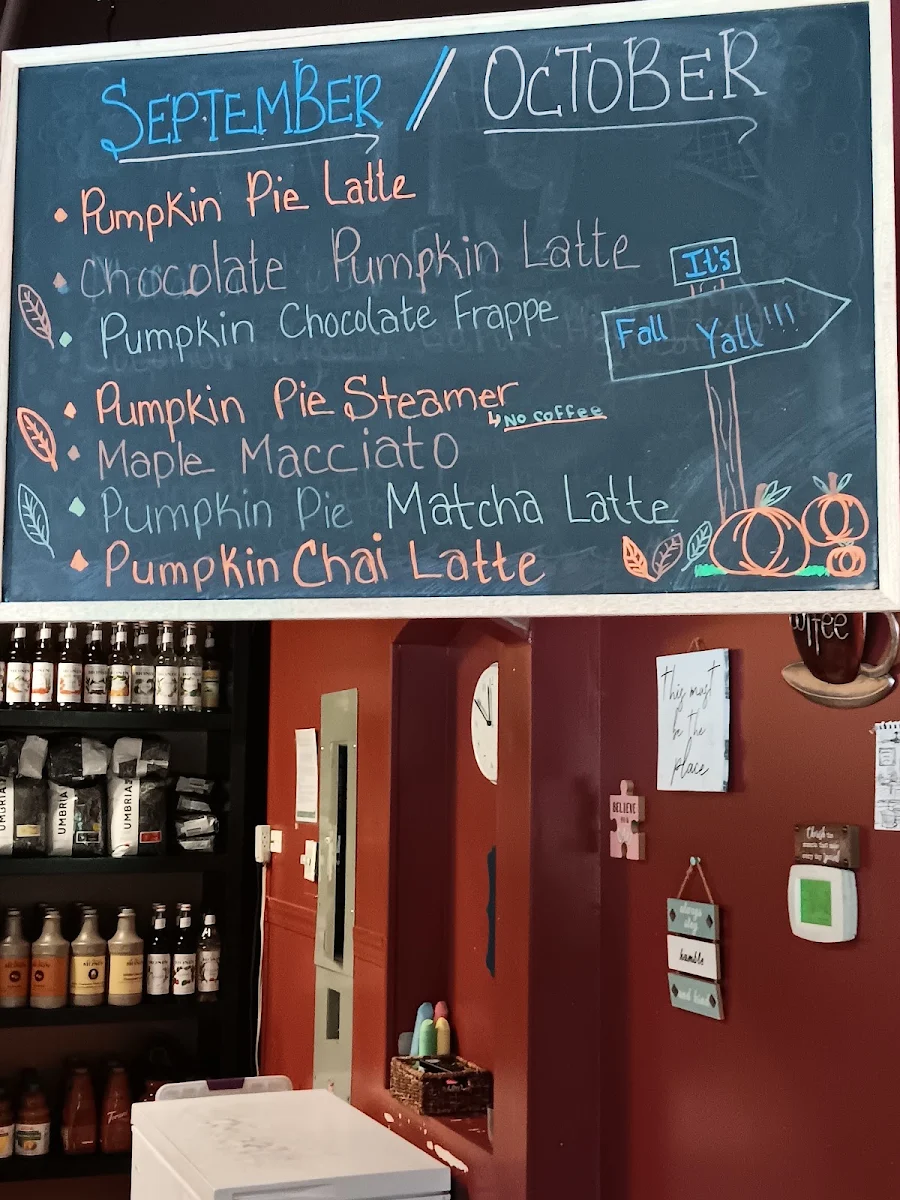 SEPTEMBER / OCTOBER
Pumpkin Pie Latte
Chocolate Pumpkin Latte
Pumpkin Chocolate Frappe
Pumpkin Pie Steamer
No coffee
Maple Macciato
Pumpkin Pie Matcha Latte
Pumpkin Chai Latte
It's
Fall Yall!!!
offee
This must
be the
place
BELIEVE
UMBRIA
UMBRIA
UMBRIA
always
stay
humble
and kind
Torani